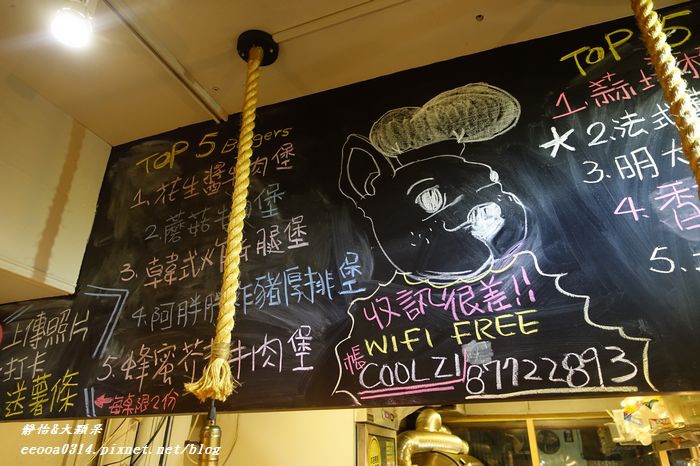 TOP 5 Burgers
1. 花生醬牛肉堡
2. 蘑菇牛肉堡
3. 韓式炸雞腿堡
4. 阿胖胖炸豬厚排堡
5. 蜂蜜芥末牛肉堡
上傳照片
打卡
送薯條
每桌限2份
收訊很差!!
WIFI FREE
帳 COOLZ1
87722893
TOP 5
1. 蒜
2. 法式
3. 明太
4. 香
5.
靜怡&大顆呆
eeooa0314.pixnet.net/blog